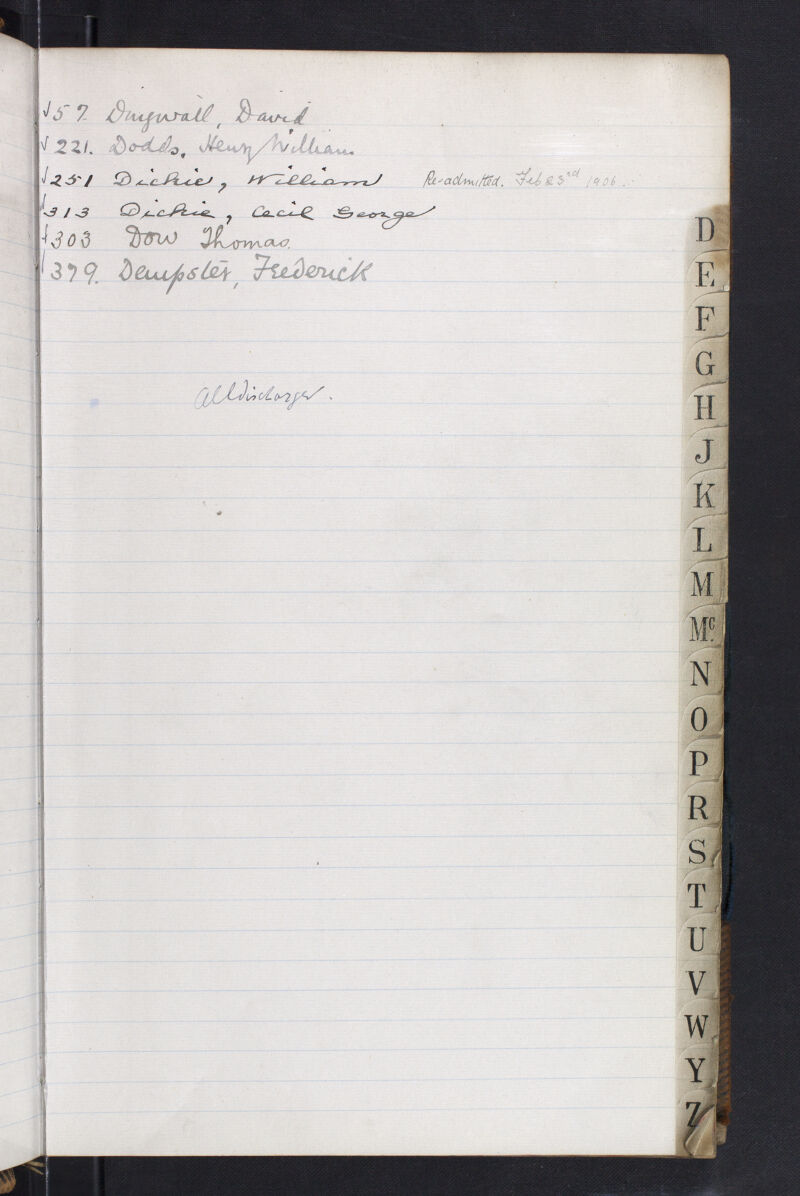 √57. Dingwall, David
√221. Dodds, Henry William
√251 Dickie, William Re-admitted. Feb 23rd 1906.
√313 Dickie, Cecil George
√303 Dow Thomas.
√379. Dempster, Frederick
All discharged.
D
E
F
G
H
J
K
L
M
Mc.
N
O
P
R
S
T
U
V
W
Y
Z